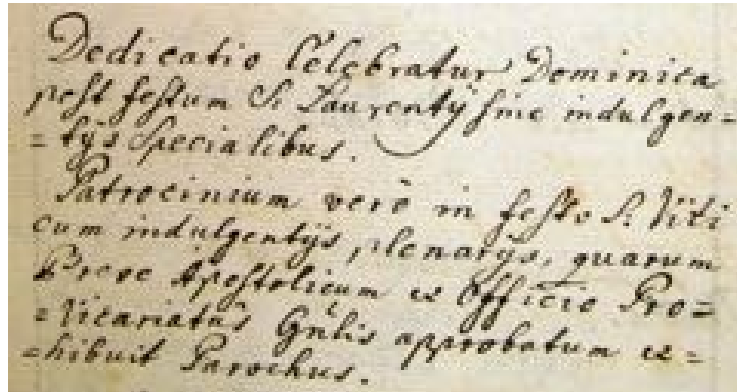 Dedicatio Celebratur Dominica
post festum S. Laurentÿ sine indulgen=
=tÿs Specialibus.
Patrocinium verò in festo S. Viti
cum indulgentÿs plenarÿs, quarum
Breve Apostolicum ex Officio Pro=
=Vicariatûs Gn̄lis approbatum ex=
=hibuit Parochus.